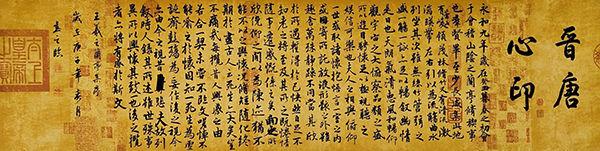 晉唐
心印
永和九年歲在癸丑暮春之初會
于會稽山陰之蘭亭脩禊事
也群賢畢至少長咸集此地
有崇山峻領茂林脩竹又有清流激
湍暎帶左右引以為流觴曲水
列坐其次雖無絲竹管弦之
盛一觴一詠亦足以暢敘幽情
是日也天朗氣清惠風和暢仰
觀宇宙之大俯察品類之盛
所以遊目騁懷足以極視聽之
娛信可樂也夫人之相與俯仰
一世或取諸懷抱悟言一室之內
或因寄所託放浪形骸之外雖
趣舍萬殊靜躁不同當其欣
於所遇暫得於己快然自足不
知老之將至及其所之既惓情
隨事遷感慨係之矣向之所
欣俛仰之間以為陳迹猶不
能不以之興懷況脩短隨化終
期於盡古人云死生亦大矣豈
不痛哉每攬昔人興感之由
若合一契未嘗不臨文嗟悼不
能喻之於懷固知一死生為虛
誕齊彭殤為妄作後之視今
亦由今之視昔悲夫故列
敘時人錄其所述雖世殊事
異所以興懷其致一也後之攬
者亦將有感於斯文
王羲之蘭亭序
歲在庚子年春月